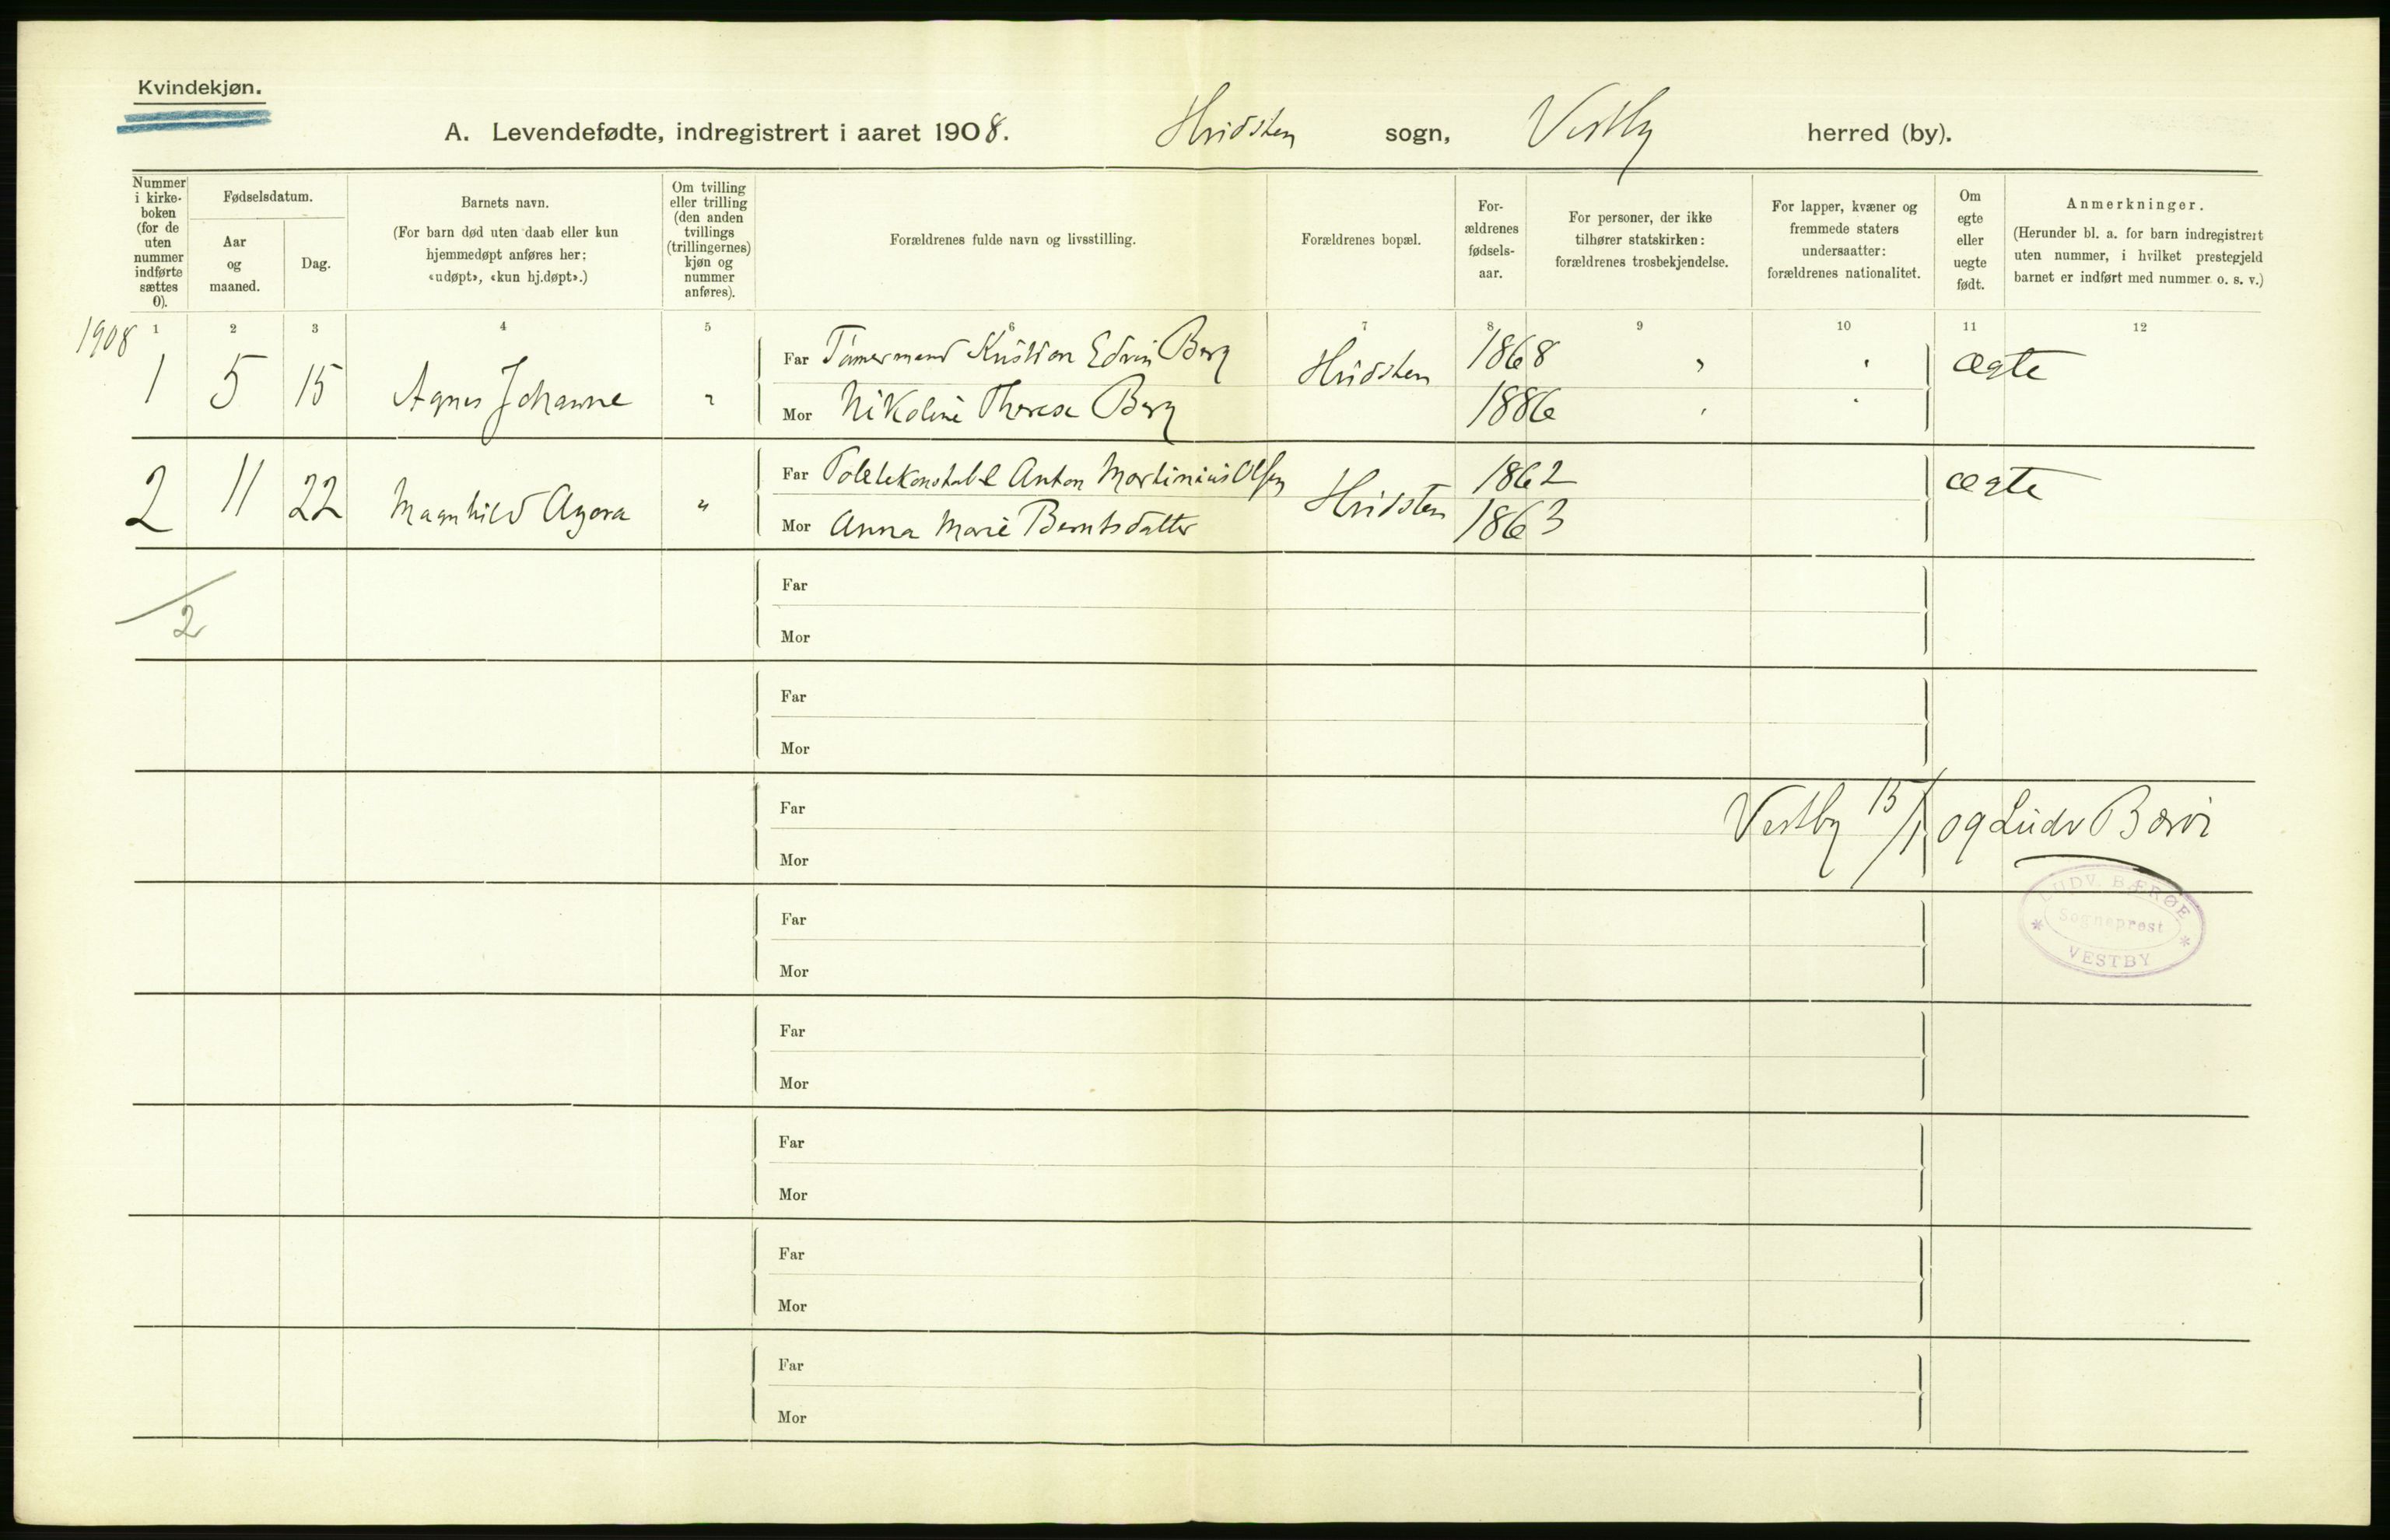 Kvindekjøn.
A. Levendefødte, indregistrert i aaret 1908. Hvidsten sogn, Vestby herred (by).
Nummer i kirke-boken (for de uten nummer indførte sættes 0).
Fødselsdatum.
Aar og maaned.
Dag.
Barnets navn.
(For barn død uten daab eller kun hjemmedøpt anføres her; «udøpt», «kun hj.døpt».)
Om tvilling eller trilling (den anden tvillings (trillingernes) kjøn og nummer anføres).
Forældrenes fulde navn og livsstilling.
Forældrenes bopæl.
For-ældrenes fødsels-aar.
For personer, der ikke tilhører statskirken: forældrenes trosbekjendelse.
For lapper, kvæner og fremmede staters undersaatter: forældrenes nationalitet.
Om egte eller uegte født.
Anmerkninger.
(Herunder bl. a. for barn indregistrert uten nummer, i hvilket prestegjeld barnet er indført med nummer o. s. v.)
1 2 3 4 5 6 7 8 9 10 11 12
1908
1 5 15 Agnes Johanne " Far Tømermand Kristian Edvin Berg Hvidsten 1868 " " ægte
Mor Nikoline Therese Berg 1886 " "
2 11 22 Magnhild Agora " Far Anton Martinius Olsen Hvidsten 1862 ægte
Mor Anna Marie Berntsdatter 1863
2
Far
Mor
Far
Mor
Far
Vestby 15/1 09 Ludv Bærøe
Mor
LUDV. BÆRØE
Sogneprest
VESTBY
Far
Mor
Far
Mor
Far
Mor
Far
Mor
Far
Mor